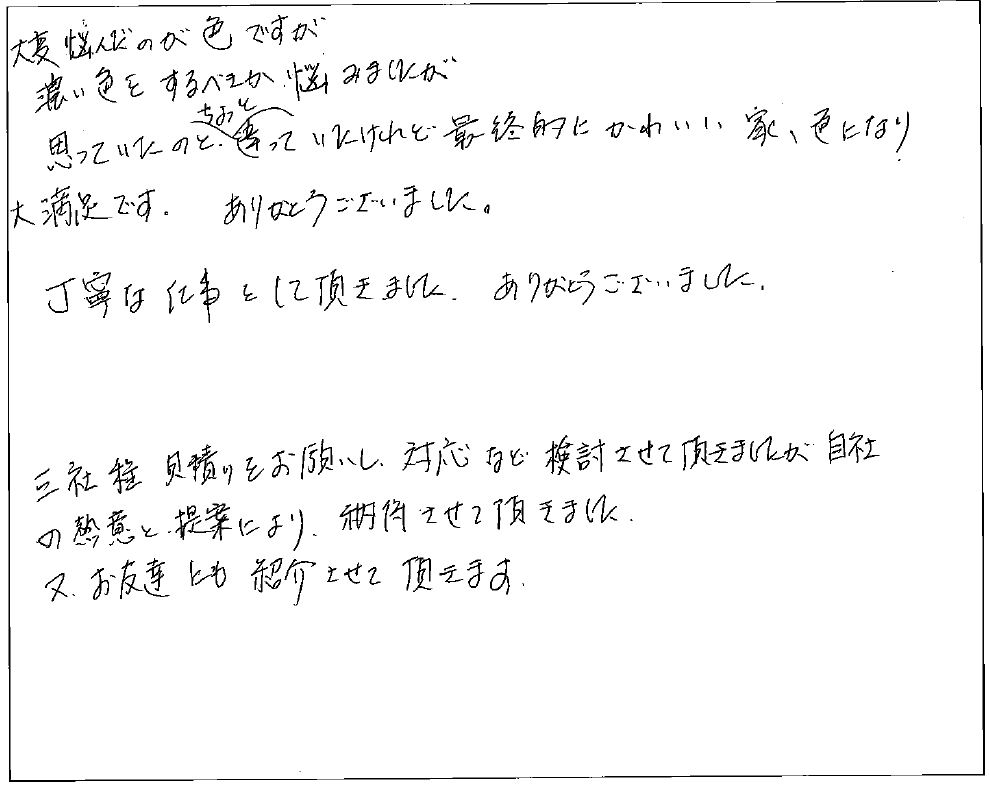 大変悩んだのが色ですが
濃い色をするべきか悩みましたが
思っていたのと、ちょっと違っていたけれど最終的にかわいい家、色になり
大満足です。 ありがとうございました。
丁寧な仕事をして頂きました。 ありがとうございました。
三社程見積りをお願いし、対応など検討させて頂きましたが自社
の熱意と提案により、納得させて頂きました。
又、お友達にも紹介させて頂きます。